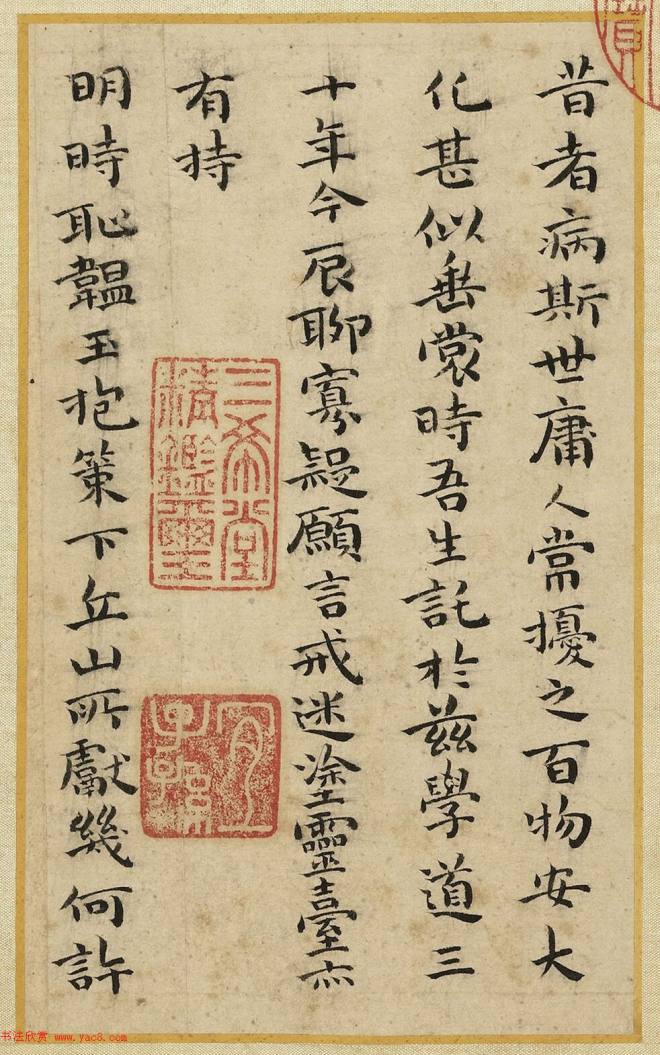 昔者病斯世庸人常擾之百物安大
化甚似垂裳時吾生託於茲學道三
十年今辰聊寡疑願言戒迷塗靈臺亦
有持
三希堂精鑑璽
宜子孫
明時恥韞玉抱策下丘山所獻幾何許
书法欣赏 www.yac8.com